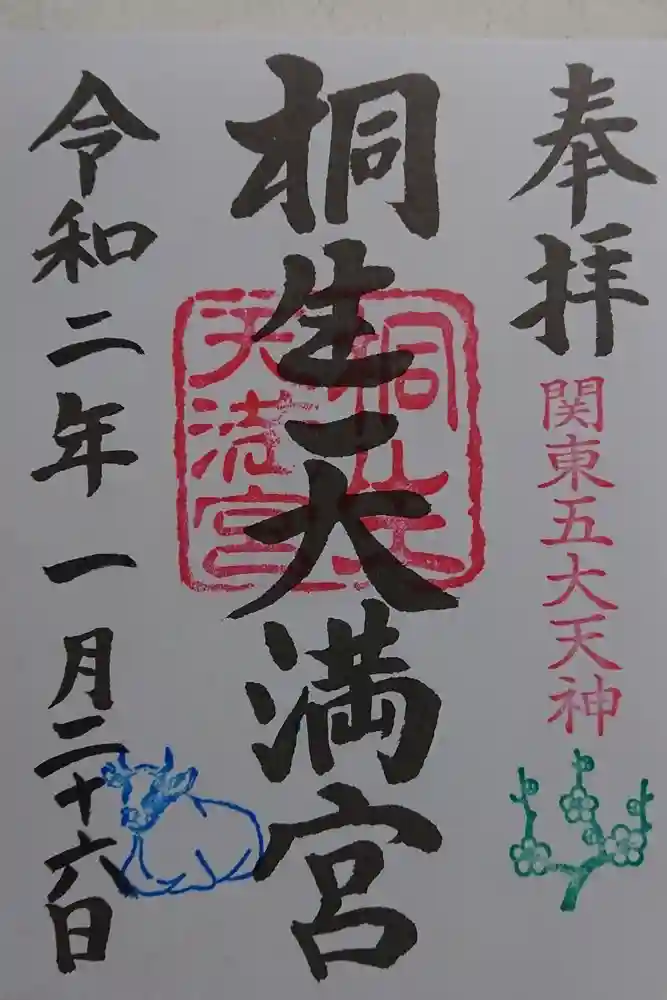 奉拝
関東五大天神
桐生天満宮
桐生
天満宮
令和二年一月二十六日